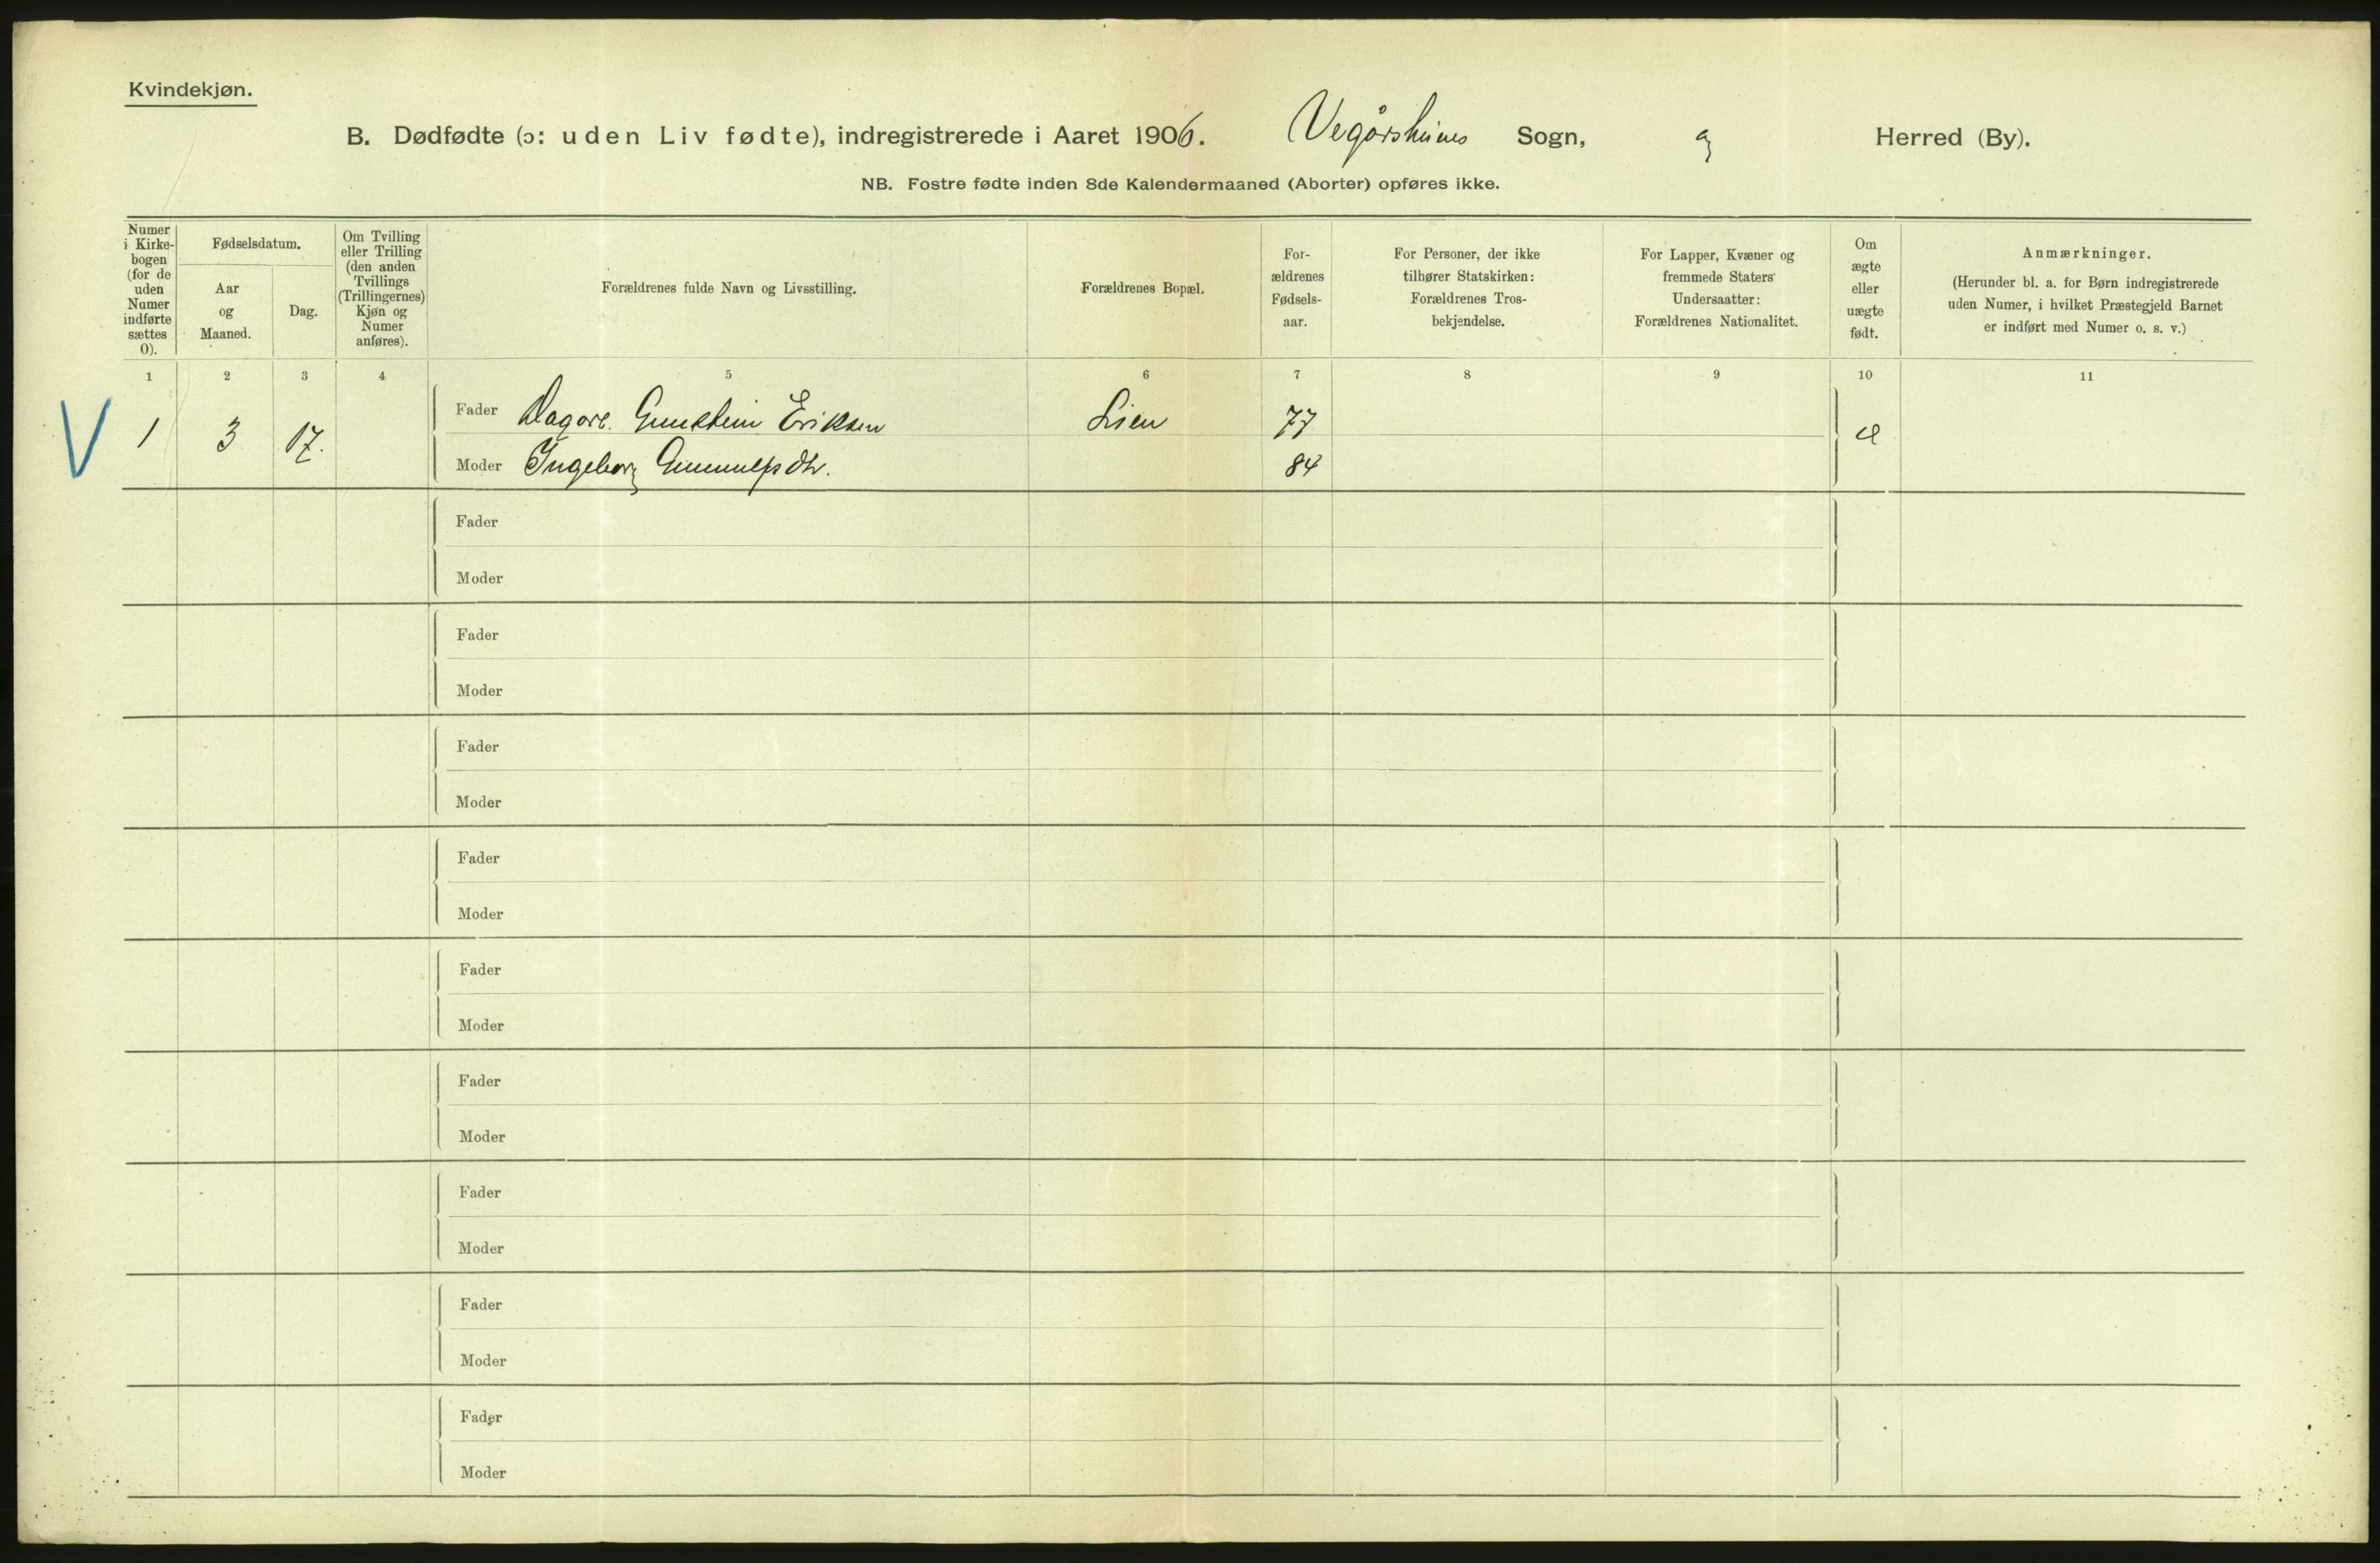 Kvindekjøn.
B. Dødfødte (ɔ: uden Liv fødte), indregistrerede i Aaret 1906. Vegårsheiens Sogn, og Herred (By).
NB. Fostre fødte inden 8de Kalendermaaned (Aborter) opføres ikke.
Numer i Kirke-
bogen
(for de
uden
Numer
indførte
sættes
0).
Fødselsdatum.
Aar
og
Maaned.
Dag.
Om Tvilling
eller Trilling
(den anden
Tvillings
(Trillingernes)
Kjøn og
Numer
anføres).
Forældrenes fulde Navn og Livsstilling.
Forældrenes Bopæl.
For-
ældrenes
Fødsels-
aar.
For Personer, der ikke
tilhører Statskirken:
Forældrenes Tros-
bekjendelse.
For Lapper, Kvæner og
fremmede Staters
Undersaatter:
Forældrenes Nationalitet.
Om
ægte
eller
uægte
født.
Anmærkninger.
(Herunder bl. a. for Børn indregistrerede
uden Numer, i hvilket Præstegjeld Barnet
er indført med Numer o. s. v.)
1 2 3 4 5 6 7 8 9 10 11
V 1 3 17.
Fader Dagarb. Gunstein Eriksen Lien 77
Moder Ingeborg Gunnulfsdtr. 84
Fader
Moder
Fader
Moder
Fader
Moder
Fader
Moder
Fader
Moder
Fader
Moder
Fader
Moder
Fader
Moder
Fader
Moder